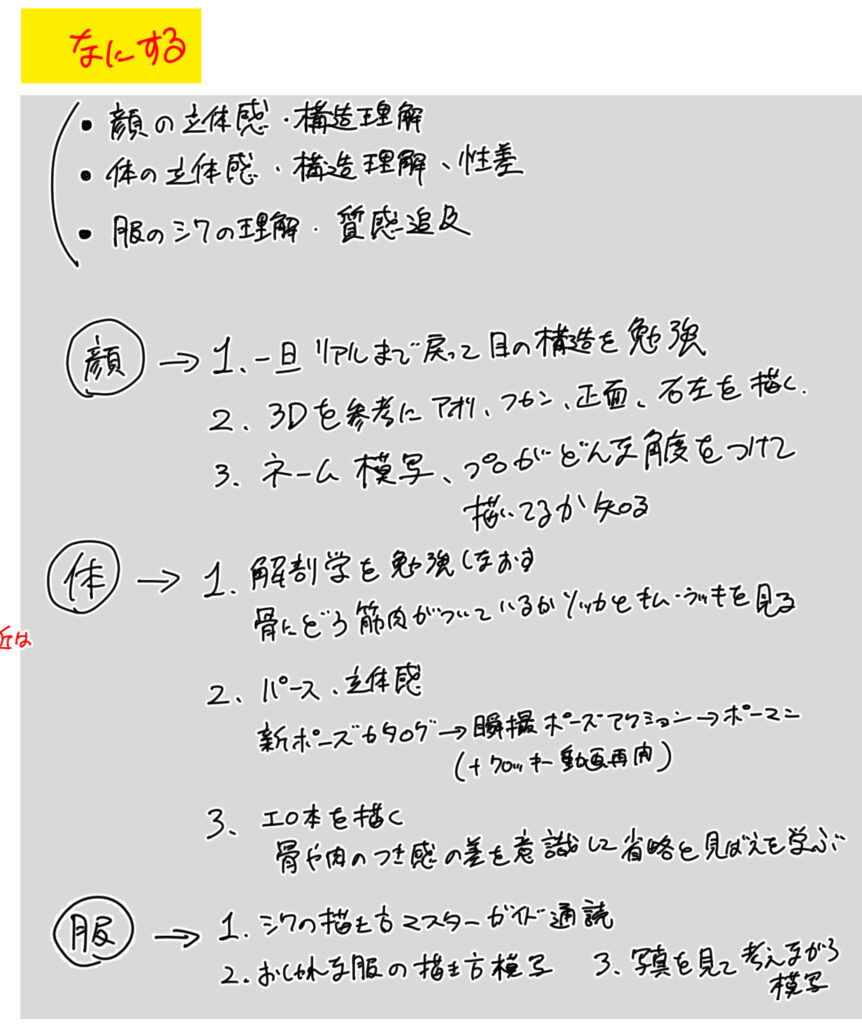 なにする
・顔の立体感・構造理解
・体の立体感・構造理解、性差
・服のシワの理解・質感追及
顔→1、一旦リアルまで戻って目の構造を勉強
2、3Dを参考にアオリ、フカン、正面、右左を描く.
3、ネーム模写、プロがどんな角度をつけて
描いてるか知る
体→1、解剖学を勉強しなおす
骨にどう筋肉がついているかソッカとキム・ラッキを見る
近は
2、パース、立体感
新ポーズカタログ→瞬撮ポーズアクション→ポーマニ
(+クロッキー動画再肉)
3、エロ本を描く
骨や肉のつき感の差を意識して省略と見ばえを学ぶ
服→1、シワの描き方マスターガイド通読
2、おしゃれな服の描き方模写 3、写真を見て考えながら
模写